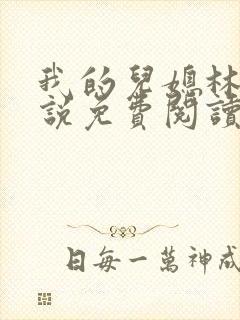 我的兒媳林
說免費閱讀
日每一萬神成